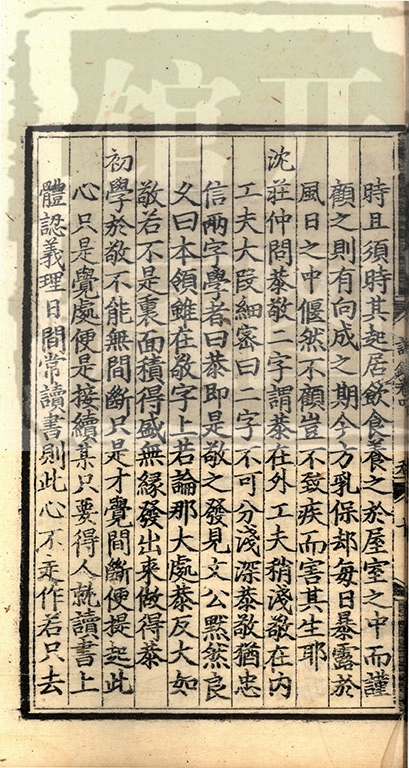 時且須時其起居飲食養之於屋室之中而謹
顧之則有向成之期今方乳保却每日暴露於
風日之中偃然不顧豈不致疾而害其生耶
沈莊仲問恭敬二字謂恭在外工夫稍淺敬在内
工夫大段細密曰二字不可分淺深恭敬猶忠
信兩字學者曰恭即是敬之發見文公黙然良
乆曰本領雖在敬字上若論那大處恭反大如
敬若不是裏面積得盛無縁發出來做得恭
初學於敬不能無間斷只是才覺間斷便提起此
心只是覺處便是接續某只要得人就讀書上
體認義理日間常讀書則此心不走作若只去